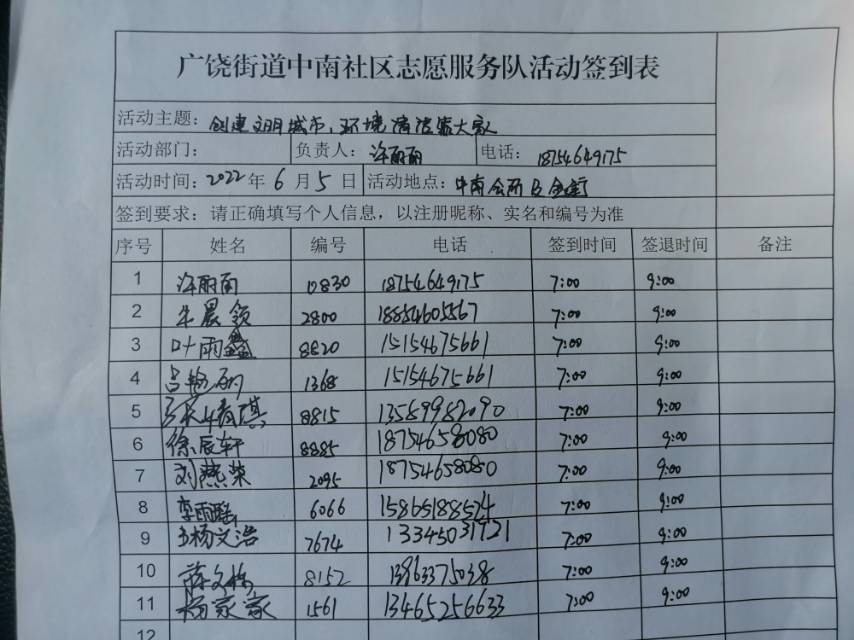 广饶街道中南社区志愿服务队活动签到表
活动主题：创建文明城市，环境清洁靠大家
活动部门： 负责人：许丽丽 电话：18754649175
活动时间：2022年6月5日 活动地点：中南会所
签到要求：请正确填写个人信息，以注册昵称、实名和编号为准
序号 姓名 编号 电话 签到时间 签退时间 备注
1 许丽丽 0830 18754649175 7:00 9:00
2 牛晨领 2800 18854605567 7:00 9:00
3 叶雨鑫 8820 15154675661 7:00 9:00
4 吕艳丽 1368 15154675661 7:00 9:00
5 8815 13589952090 7:00 9:00
6 徐辰轩 8885 18754658080 7:00 9:00
7 刘燕荣 2095 18754658080 7:00 9:00
8 李雨瑶 6066 15865188524 7:00 9:00
9 杨文浩 7674 7:00 9:00
10 8152 13963375038 7:00 9:00
11 杨家家 1561 13465256633 7:00 9:00
12